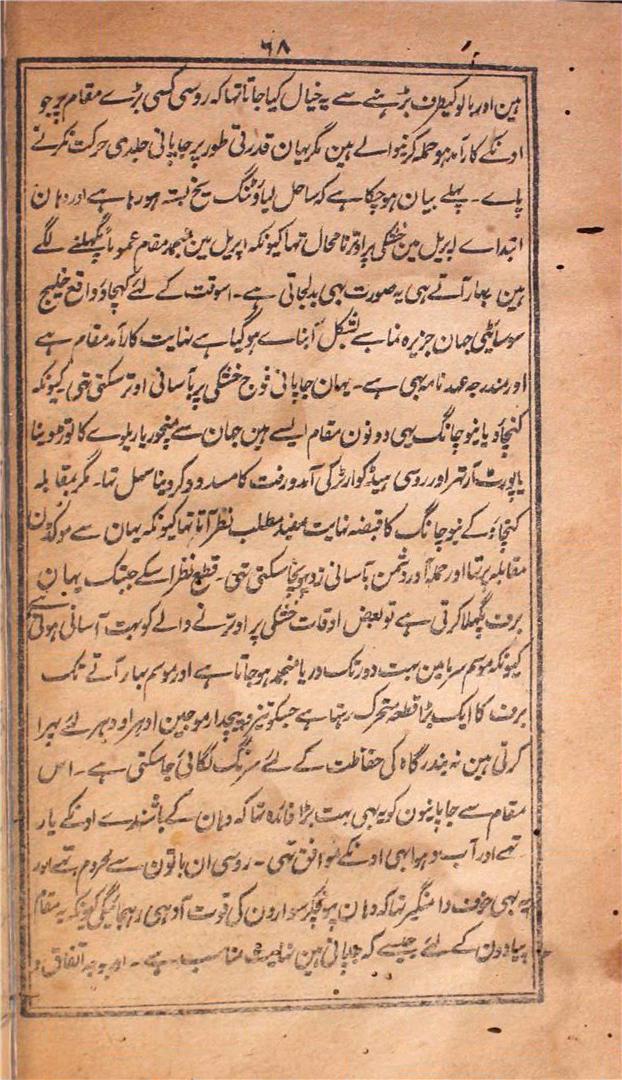 ۶۸
ہین اور یالو کیطرف بڑہنے سے یہ خیال کیا جاتا تہا کہ روسی کسی بڑے مقام پر جو
اونکے کار آمد ہو حملہ کرنیوالے ہین مگر یہان قدرتی طور پر جاپانی جلدی حرکت نکرنے
پاے ۔ پہلے بیان ہوچکا ہے کہ ساحل لیاؤٹنگ یخ بستہ ہو رہا ہے اور وہان
ابتداے اپریل مین خشکی پر اوترنا محال تہا کیونکہ اپریل مین منجمد مقام عموماً پگہلنے لگے
ہین بہار آتے ہی یہ صورت بہی بدلجاتی ہے ۔ اسوقت کے لئے کنچاؤ واقع خلیج
سوسائٹی جہان جزیرہ نما بے شکل آبناے ہوگیا ہے نہایت کار آمد مقام ہے
اور مندرجہ عہدنامہ بہی ہے ۔ یہان جاپانی فوج خشکی پر بآسانی اوتر سکتی تہی کیونکہ
کنچاؤ یا نیوچانگ یہی دونون مقام ایسے ہین جہان سے منچوریا ریلوے کا توڑ دینا
یا پورٹ آرتہر اور روسی ہیڈ کوارٹر کی آمدورفت کا مسدود کر دینا سہل تہا ۔ مگر بمقابلہ
کنچاؤ کے نیوچانگ کا قبضہ نہایت مفید مطلب نظر آتا تہا کیونکہ یہان سے موکڈن
مقابلہ پر تہا اور حملہ آور دشمن بآسانی زد پہنچا سکتی تہی ۔ قطع نظر اسکے جبتک یہان
برف پگہلا کرتی ہے تو بعض اوقات خشکی پر اوترنے والے کو بہت آسانی ہوتی ہے
کیونکہ موسم سرما مین بہت دور تک دریا منجمد ہوجاتا ہے اور موسم بہار آتے تک
برف کا ایک بڑا قطعہ متحرک رہتا ہے جسکو تیز و پیچدار موجین ادہر اودہر لئے پہرا
کرتی ہین نہ بندرگاہ کی حفاظت کے لئے سرنگ لگائی جاسکتی ہے ۔ اس
مقام سے جاپانیون کو یہ بہی بہت بڑا فائدہ تہا کہ وہان کے باشندے اونکے یار
تہے اور آب و ہوا بہی اونکے موافق تہی ۔ روسی ان باتون سے محروم تہے اور
یہ بہی خوف دامنگیر تہا کہ وہان پہونچکر سوارون کی قوت آدہی رہجائیگی کیونکہ یہ مقام
پیادون کے لئے جیسے کہ جاپانی ہین نہایت مناسب ہے ۔ اور بوجہ اتفاق